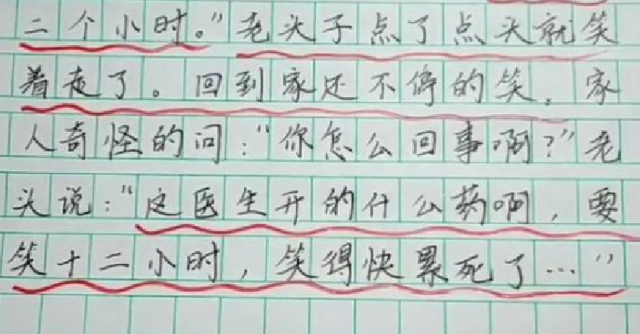 二个小时。”老头子点了点头就笑
着走了。回到家还不停的笑，家
人奇怪的问：“你怎么回事啊？”老
头说：“这医生开的什么药啊，要
笑十二小时，笑得快累死了…”